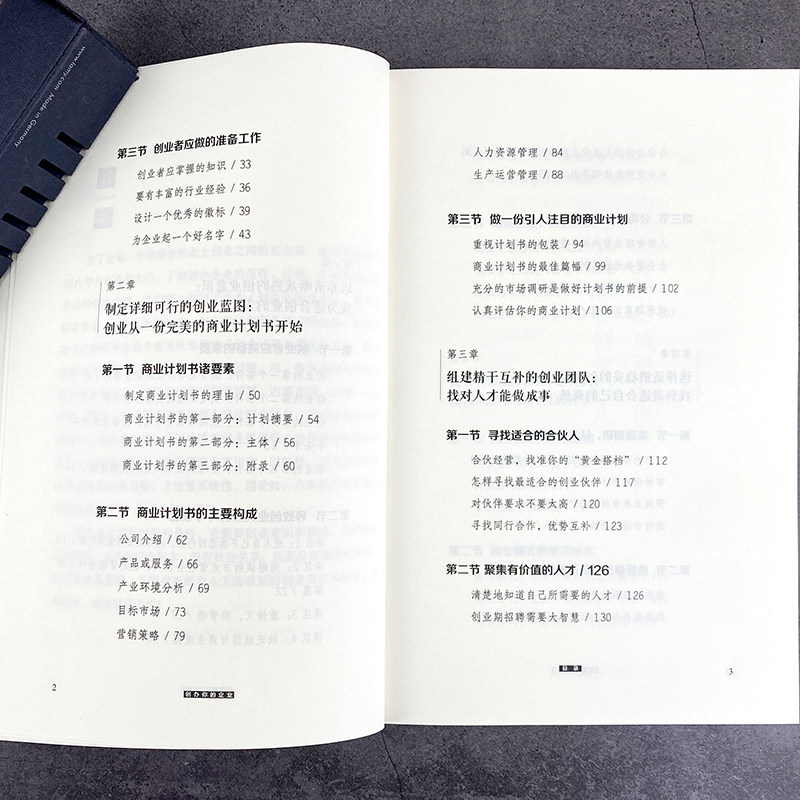 www.lamy.com Made in Germany
第三节 创业者应做的准备工作
创业者应掌握的知识 / 33
要有丰富的行业经验 / 36
设计一个优秀的徽标 / 39
为企业起一个好名字 / 43
第二章
制定详细可行的创业蓝图：
创业从一份完美的商业计划书开始
第一节 商业计划书诸要素
制定商业计划书的理由 / 50
商业计划书的第一部分：计划摘要 / 54
商业计划书的第二部分：主体 / 56
商业计划书的第三部分：附录 / 60
第二节 商业计划书的主要构成
公司介绍 / 62
产品或服务 / 66
产业环境分析 / 69
目标市场 / 73
营销策略 / 79
2
创办你的企业
人力资源管理 / 84
生产运营管理 / 88
第三节 做一份引人注目的商业计划
重视计划书的包装 / 94
商业计划书的最佳篇幅 / 99
充分的市场调研是做好计划书的前提 / 102
认真评估你的商业计划 / 106
第三章
组建精干互补的创业团队：
找对人才能做成事
第一节 寻找适合的合伙人
合伙经营，找准你的“黄金搭档” / 112
怎样寻找最适合的创业伙伴 / 117
对伙伴要求不要太高 / 120
寻找同行合作，优势互补 / 123
第二节 聚集有价值的人才 / 126
清楚地知道自己所需要的人才 / 126
创业期招聘需要大智慧 / 130
目录
3